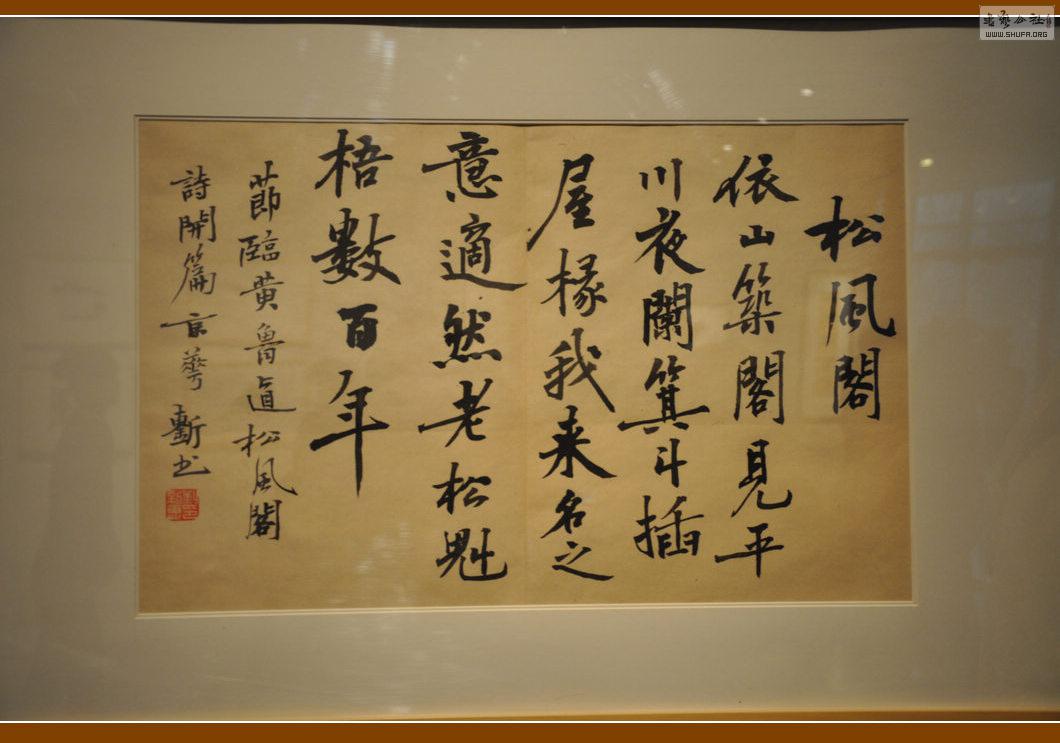 松風閣
依山築閣見平
川夜闌箕斗插
屋椽我来名之
意適然老松魁
梧數百年
節臨黄魯直松風閣
詩開篇京華
書
WWW.SHUFA.ORG